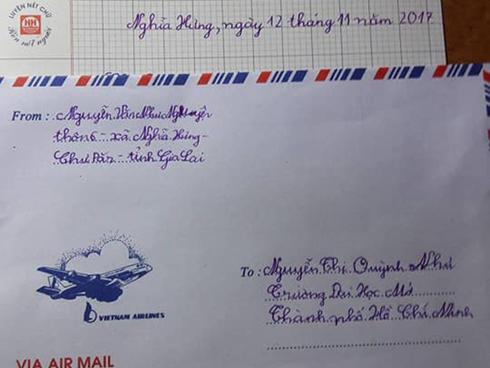 LUYỆN NÉT CHỮ
HH
Rèn nết người
Nghĩa Hưng, ngày 12 tháng 11 năm 2017
From : Nguyễn Văn Như Nguyện
thôn 6 - xã Nghĩa Hưng -
Chư Păh - tỉnh Gia Lai
VIETNAM AIRLINES
To : Nguyễn Thị Quỳnh Như
Trường Đại Học Mở
Thành phố Hồ Chí Minh
VIA AIR MAIL